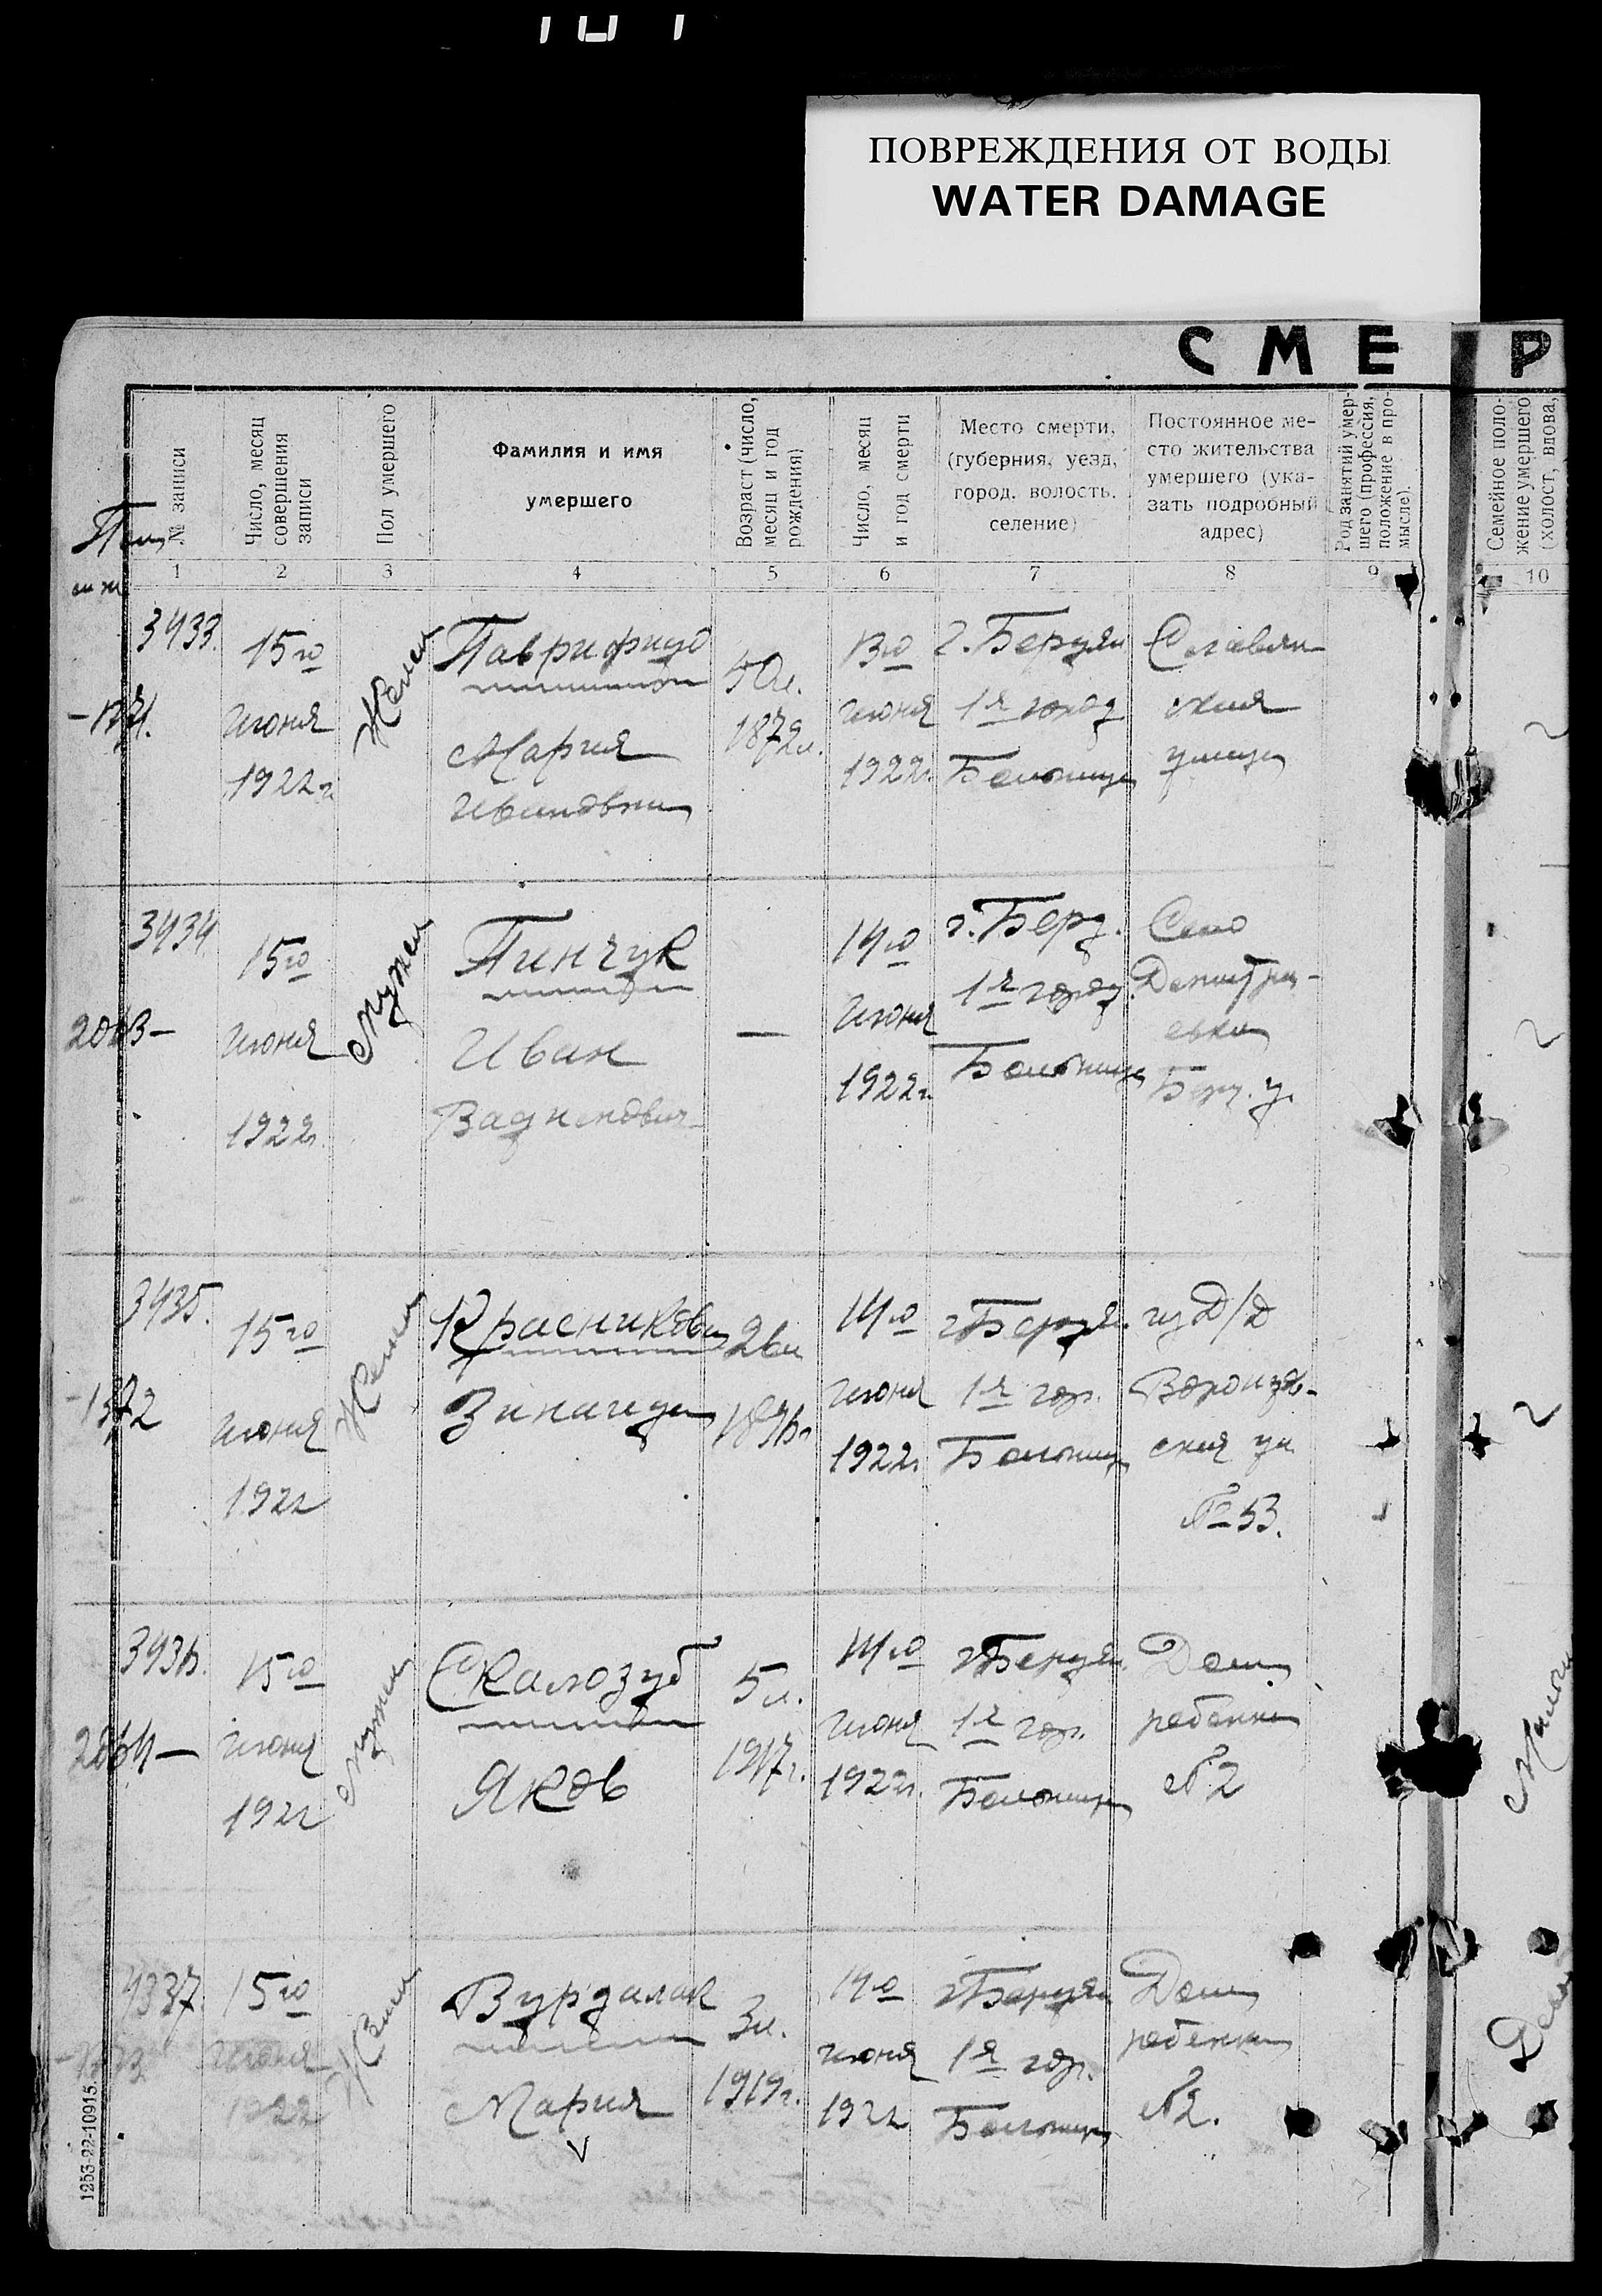 ПОВРЕЖДЕНИЯ ОТ ВОДЫ
WATER DAMAGE
СМЕ Р
№ записи
Число, месяц совершения записи
Пол умершего
Фамилия и имя
умершего
Возраст (число, месяц и год рождения)
Число, месяц и год смерти
Место смерти,
(губерния, уезд,
город, волость,
селение)
Постоянное ме-
сто жительства
умершего (ука-
зать подробный
адрес)
Род занятий умер-
шего (профессия,
положение в про-
мысле).
Семейное поло-
жение умершего
(холост, вдова,
1 2 3 4 5 6 7 8 9 10
3433.
15го
июня
1922г
Женск
Мария
Ивановна
50л.
1872г.
13го
июня
1922г.
г. Бердян
1я город
Больница
Славян
ская
улица
3434
15го
июня
1922г.
Мужск
Пинчук
Иван
—
14го
июня
1922г.
г. Берд.
1я город.
Больница
Село
Дмитри-
евка
Берд. у.
3435.
15го
июня
1922
Женск
Красникова
Зинаида
26л
1896г
14го
июня
1922г.
г Бердян.
1я гор.
Больниц
из Д/Д
Воронцов-
ская ул
№ 53.
3436.
2064—
15го
июня
1922
Мужск
Скалозуб
Яков
5л.
1917г.
14го
июня
1922г.
г Бердян.
1я гор.
Больница
Дом
ребенка
№ 2
15го
июня
1922
Женск
Вурдалак
Мария
3л.
1919г.
14го
июня
1922
г Бердян
1я гор.
Больница
Дом
ребенка
№ 2.
1253-22-10915.